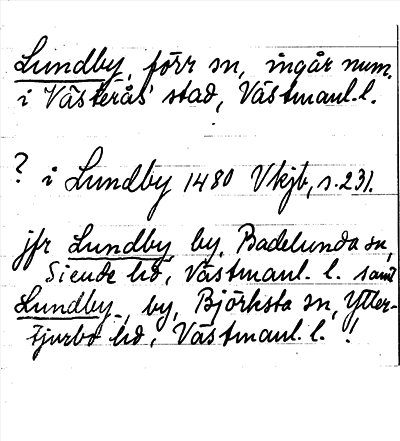 Lundby, förr sn, ingår num.
i Västerås stad, Västmanl. l.
? i Lundby 1480 Vkjb, s. 231.
jfr Lundby, by, Badelunda sn,
Siende hd, Västmanl. l. samt
Lundby, by, Björksta sn, Ytter-
tjurbo hd, Västmanl. l. !